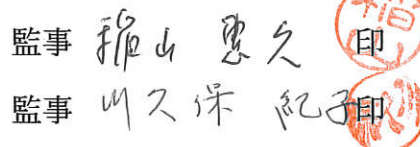 監事 稲山 惠久 印
監事 川久保 紀子 印